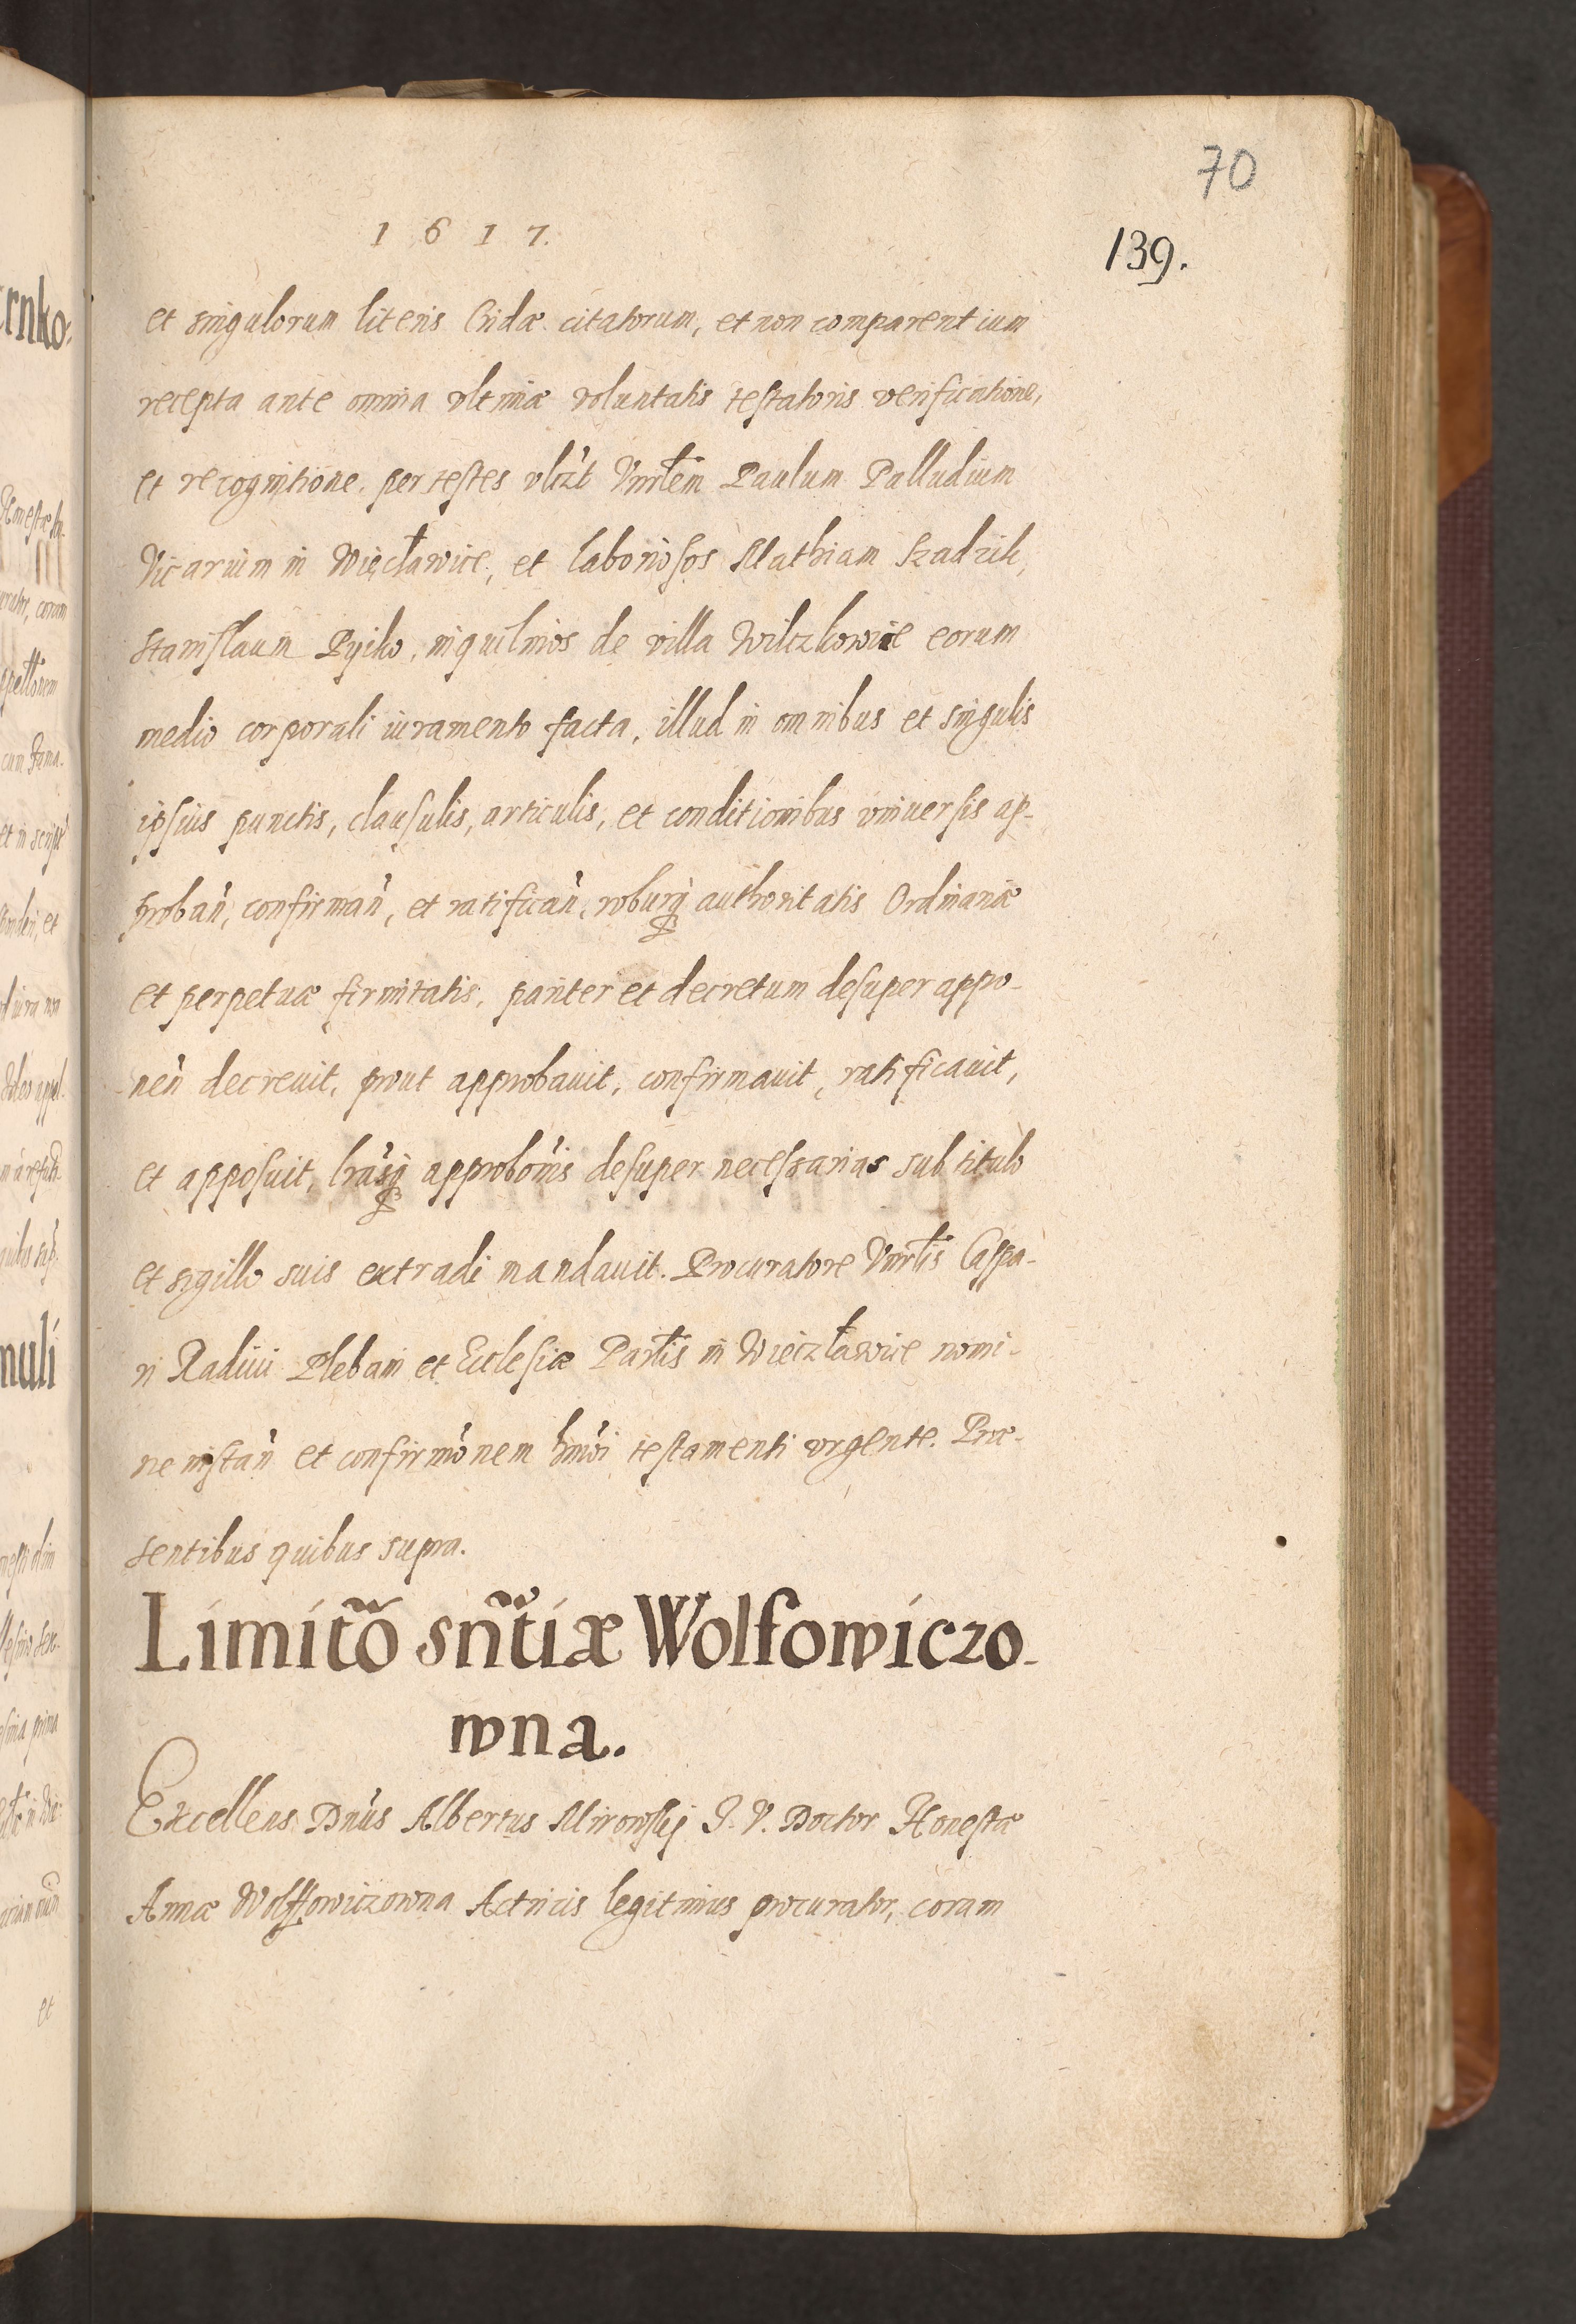 70
1617.
139.
et singulorum literis Cridæ citatorum, et non comparentium
recepta ante omnia vltimæ voluntatis testatoris verificatione,
et recognitione, per testes vlt Vnrlem Paulum Palludium
Vicarium in Więcławice, et laboriosos Mathiam Szadzik,
Stanislaum Pyiko, inquilinos de villa Wilczkowice eorum
medio corporali iuramento facta, illud in omnibus et singulis
ipsius punctis, clausulis, articulis, et conditionibus vniuersis ap-
proban̄, confirman̄, et ratifican̄, roburq̨ authoritatis Ordinariæ
et perpetuæ firmitatis, pariter et decretum desuper appo-
nen̄ decreuit, prout approbauit, confirmauit, ratificauit,
et apposuit, lrasq̨ approbonis desuper necessarias sub titulo
et sigillo suis extradi mandauit. Procuratore Vnrlis Caspa-
ri Radivii Plebani et Ecclesiæ Parlis in Wieczławice nomi-
ne instan̄ et confirmonem hmoi testamenti vrgente. Præ-
sentibus quibus supra.
Limito sntiæ Wolfowiczo-
wna.
Excellens Dnus Albertus Mirowskij I. V. Doctor Honestæ
Annæ Wolffowiczowna Actricis legitimus procurator, coram